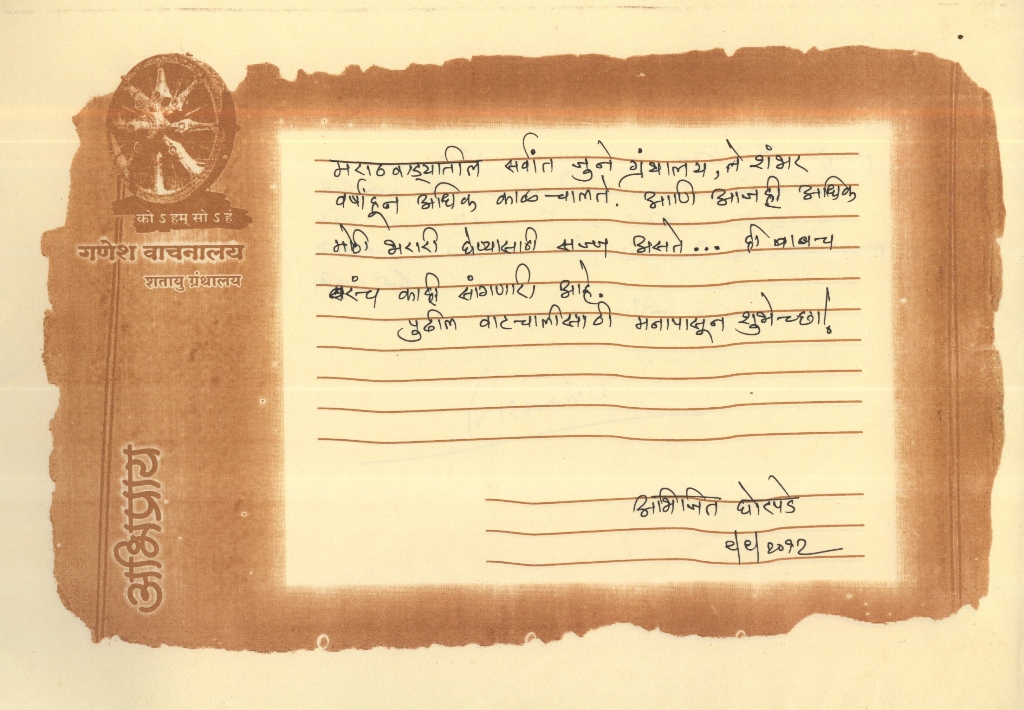 को ऽ हम् सो ऽ हं
गणेश वाचनालय
शतायु ग्रंथालय
मराठवाड्यातील सर्वात जुने ग्रंथालय, ते शंभर
वर्षांहून अधिक काळ चालते. आणि आजही अधिक
मोठी भरारी घेण्यासाठी सज्ज असते... ही बाबच
बरंच काही सांगणारी आहे.
पुढील वाटचालीसाठी मनापासून शुभेच्छा!
अभिप्राय
अभिजित घोरपडे